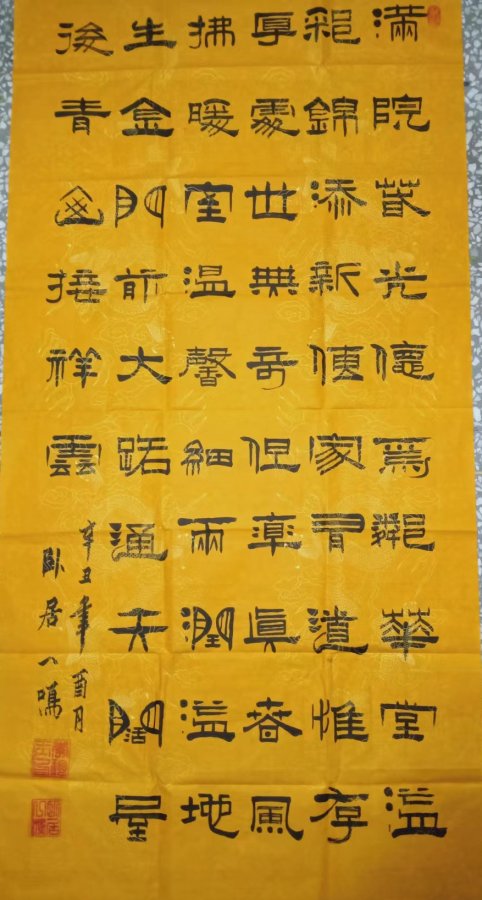 滿院春光德為鄰華堂溢
彩錦添新傳家有道惟存
厚處世無奇但率真春風
拂暖室溫馨細雨潤溢地
生金門前大路通天闊屋
後青山接祥雲
辛丑年酉月
卧居一鳴